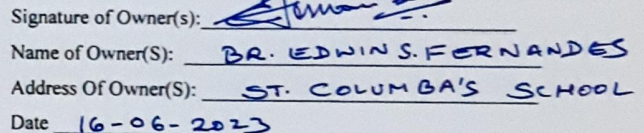 Signature of Owner(s):
Name of Owner(S): BR. EDWIN S. FERNANDES
Address Of Owner(S): ST. COLUMBA'S SCHOOL
Date 16-06-2023